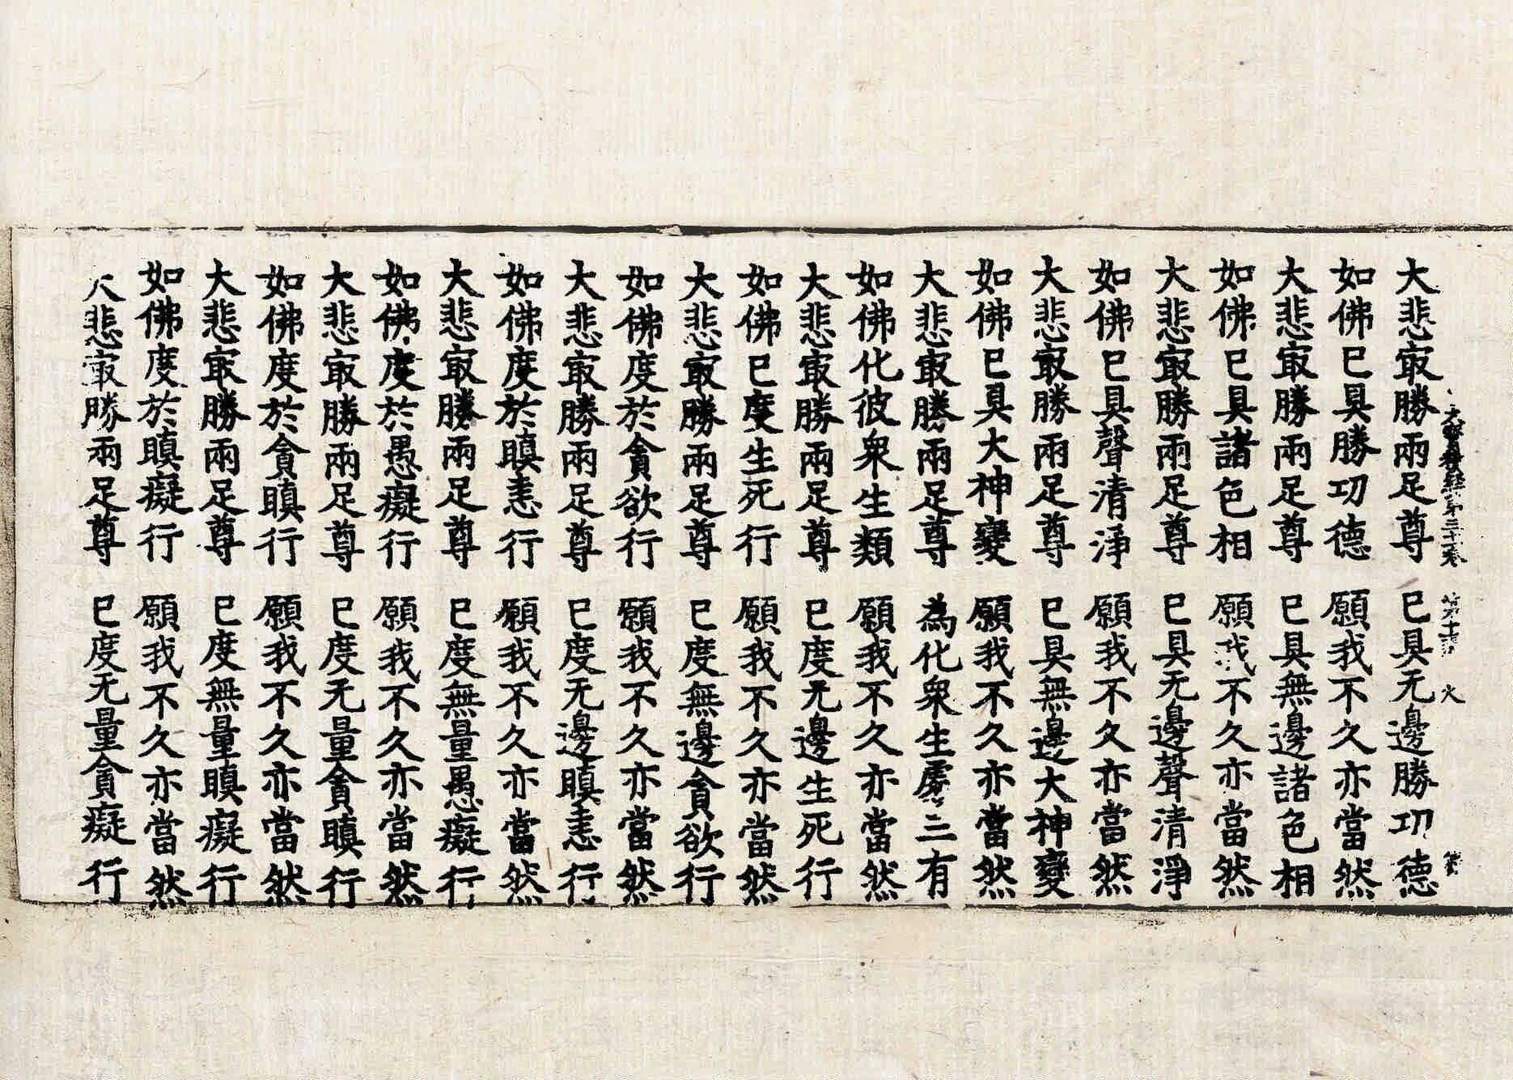 火
大悲㝡勝兩足尊 已具无邊勝功德
如佛已具勝功德 願我不久亦當然
大悲㝡勝兩足尊 已具無邊諸色相
如佛已具諸色相 願我不久亦當然
大悲㝡勝兩足尊 已具无邊聲清淨
如佛已具聲清淨 願我不久亦當然
大悲㝡勝兩足尊 已具無邊大神變
如佛已具大神變 願我不久亦當然
大悲㝡勝兩足尊 為化衆生處三有
如佛化彼衆生類 願我不久亦當然
大悲㝡勝兩足尊 已度无邊生死行
如佛已度生死行 願我不久亦當然
大悲㝡勝兩足尊 已度無邊貪欲行
如佛度於貪欲行 願我不久亦當然
大悲㝡勝兩足尊 已度无邊瞋恚行
如佛度於瞋恚行 願我不久亦當然
大悲㝡勝兩足尊 已度無量愚癡行
如佛度於愚癡行 願我不久亦當然
大悲㝡勝兩足尊 已度无量貪瞋行
如佛度於貪瞋行 願我不久亦當然
大悲㝡勝兩足尊 已度無量瞋癡行
如佛度於瞋癡行 願我不久亦當然
大悲㝡勝兩足尊 已度无量貪癡行